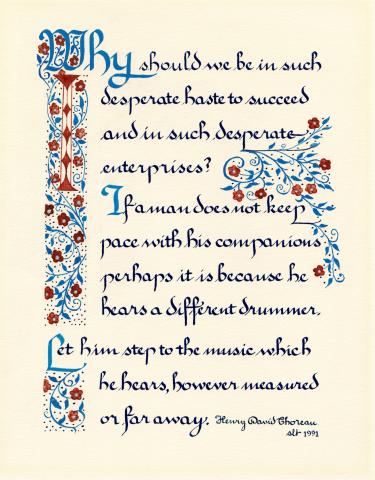 Why should we be in such
desperate haste to succeed
and in such desperate
enterprises?
If a man does not keep
pace with his companions
perhaps it is because he
hears a different drummer.
Let him step to the music which
he hears, however measured
or far away. Henry David Thoreau
slt 1991